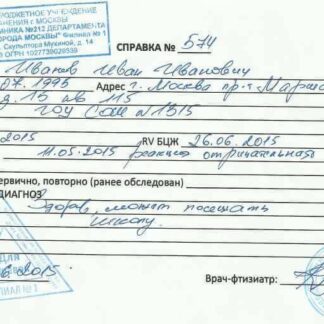 БЮДЖЕТНОЕ УЧРЕЖДЕНИЕ
АНЕНИЯ г. МОСКВЫ
НИКА №212 ДЕПАРТАМЕНТА
ОРОДА МОСКВЫ" Филиал № 1
Скульптора Мухиной, д. 14
ОГРН 1027739029539
СПРАВКА № 574
Иванов Иван Иванович
07.1995 Адрес г. Москва пр-т Марша
д. 13 кв 115
ГОУ СОШ №1315
2015 RV БЦЖ 26.06.2015
11.05.2015 реакция отрицательная
ервично, повторно (ранее обследован)
ДИАГНОЗ
Здоров, может посещать
школу.
2015
Врач-фтизиатр:
ДЛЯ
ИАЛ № 1